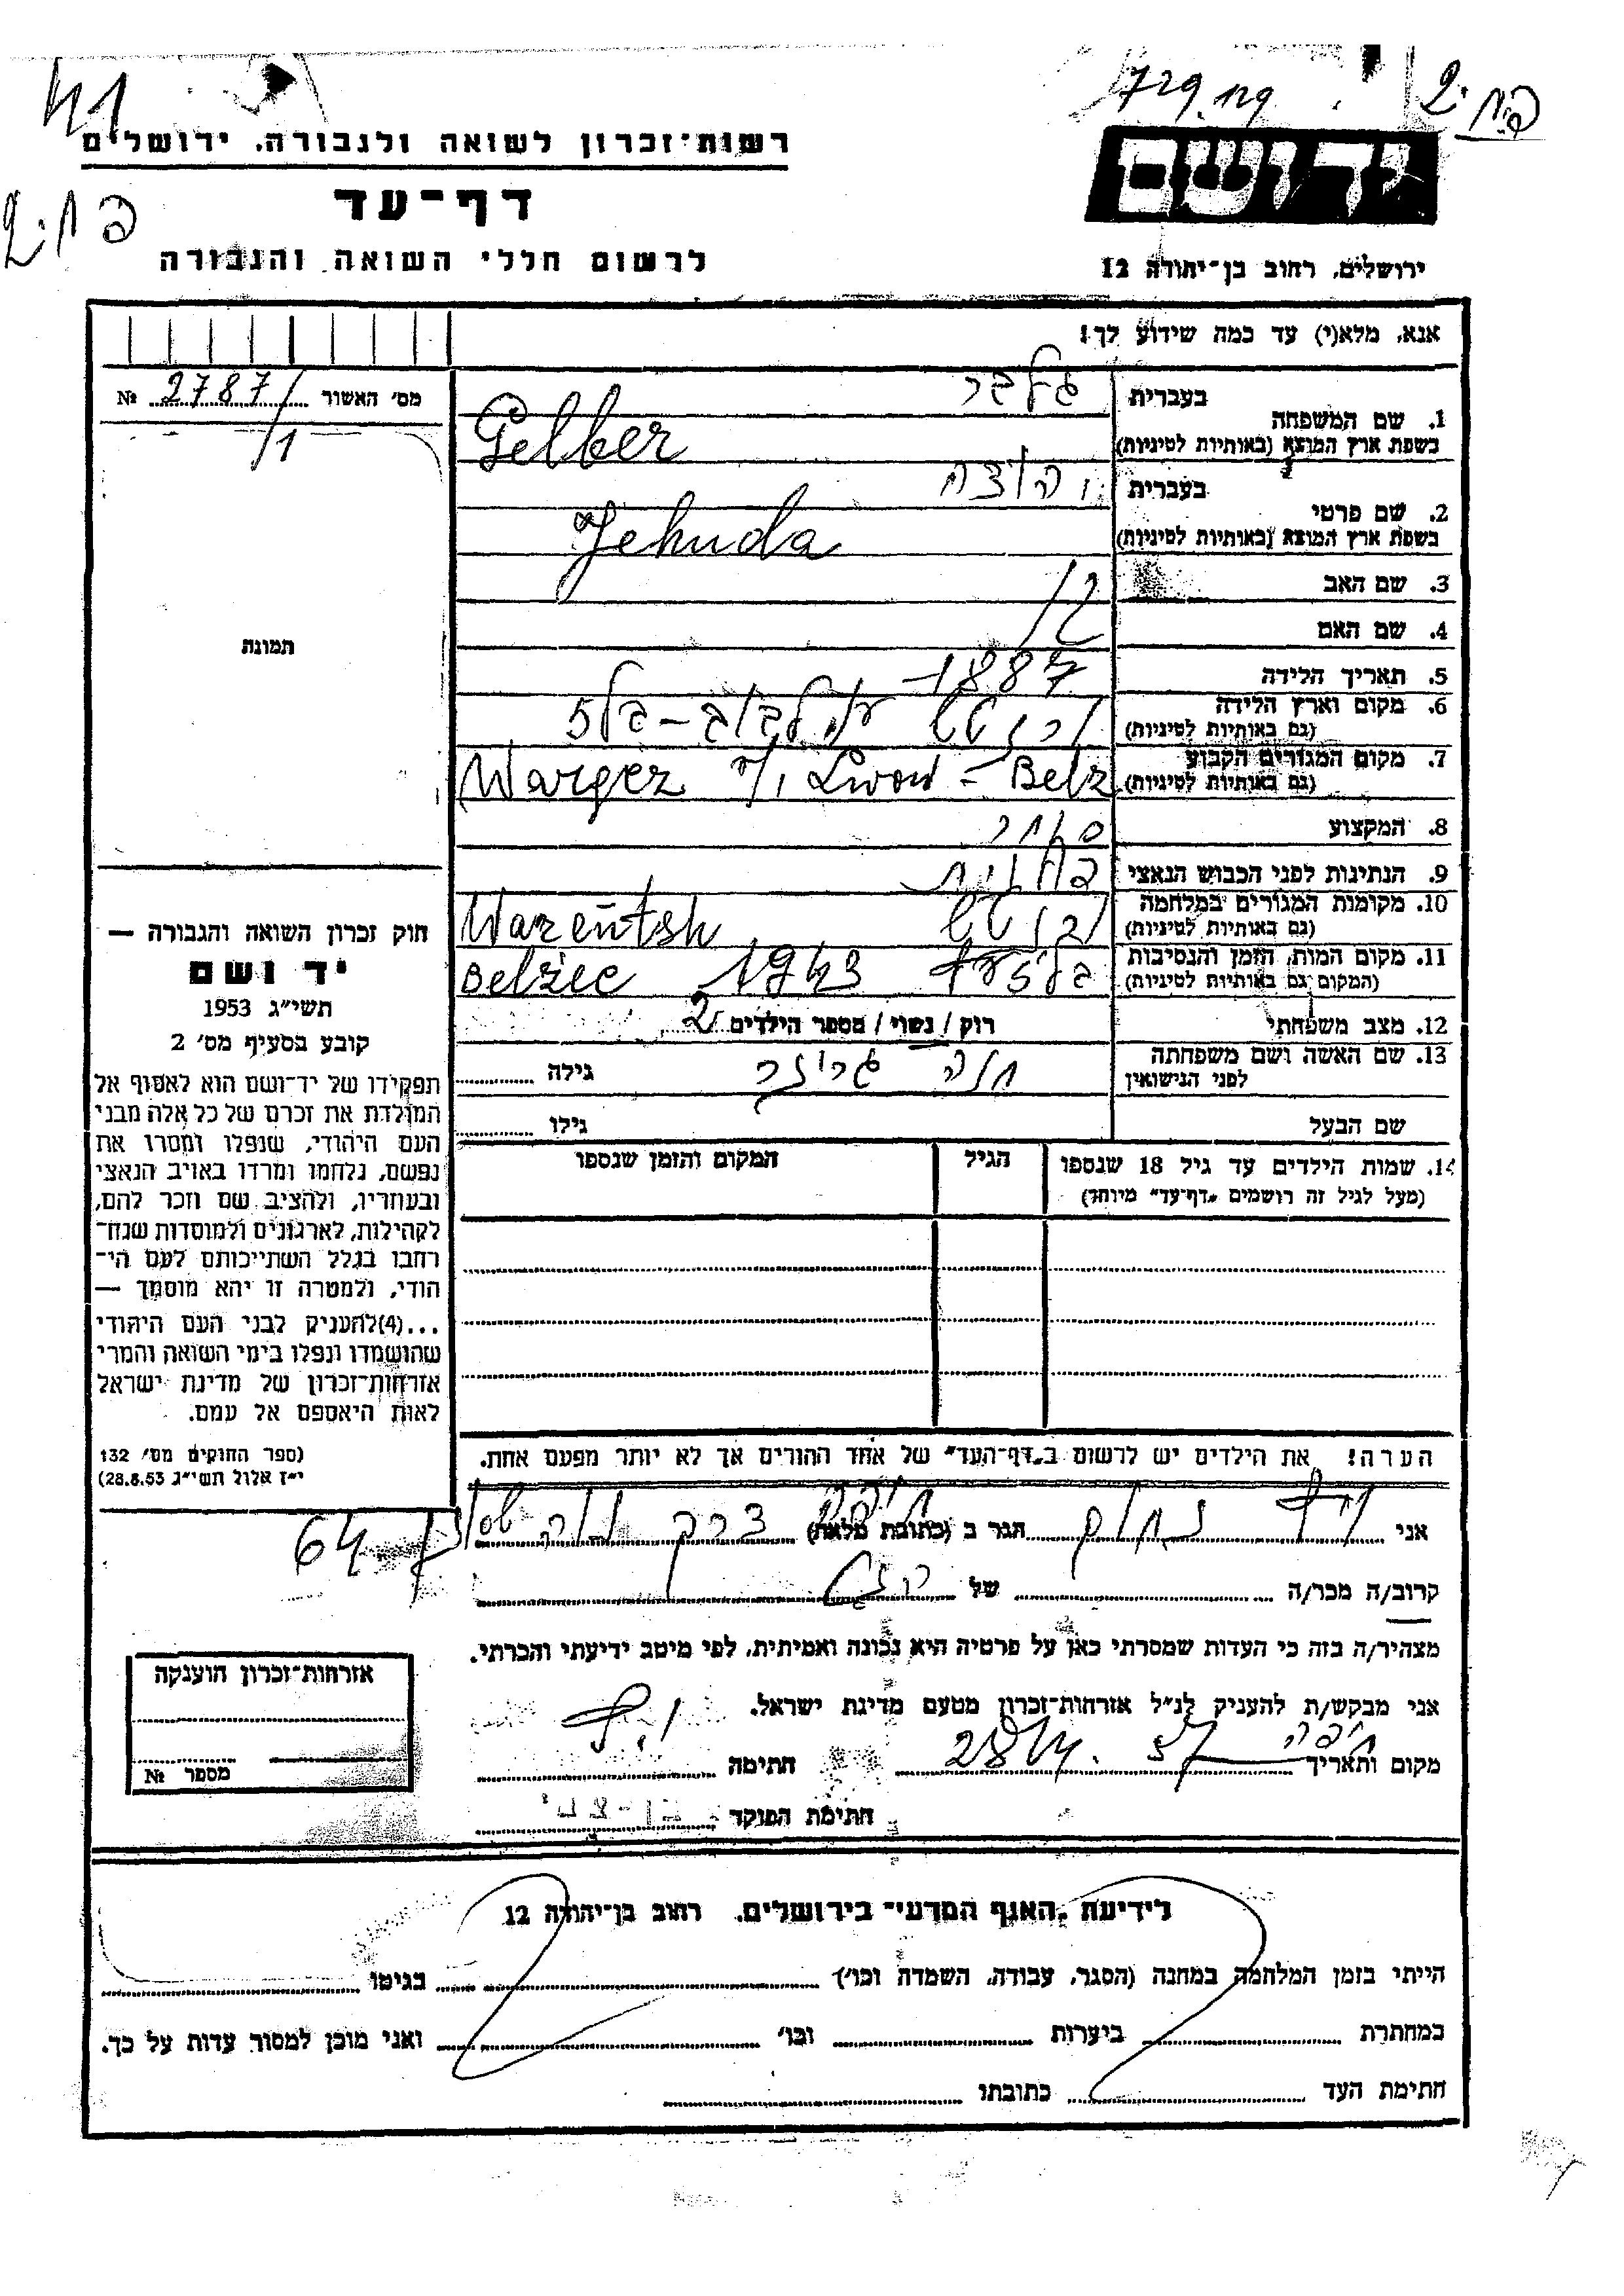 41
רשות־זכרון לשואה ולגבורה, ירושלים
דף־עד
לרשום חללי השואה והגבורה
יד ושם
ירושלים, רחוב בן־יהודה 12
אנא, מלא(י) עד כמה שידוע לך!
מס׳ האשור 2787/ №
/1
תמונה
1. שם המשפחה בעברית גלבר
בשפת ארץ המוצא (באותיות לטיניות) Gelber
2. שם פרטי בעברית יהודה
בשפת ארץ המוצא (באותיות לטיניות) Jehuda
3. שם האב
4. שם האם
5. תאריך הלידה 1887
6. מקום וארץ הלידה
(גם באותיות לטיניות)
7. מקום המגורים הקבוע Wargez Lwow - Belz
(גם באותיות לטיניות)
8. המקצוע סוחר
9. הנתינות לפני הכבוש הנאצי
10. מקומות המגורים במלחמה Warentsh
(גם באותיות לטיניות)
11. מקום המות, הזמן והנסיבות 1943 Belziec
(המקום גם באותיות לטיניות)
12. מצב משפחתי רוק / נשוי / מספר הילדים 2
13. שם האשה ושם משפחתה לפני הנישואין חנה גילה
שם הבעל גילו
14. שמות הילדים עד גיל 18 שנספו הגיל המקום והזמן שנספו
(מעל לגיל זה רושמים „דף־עד״ מיוחד)
הערה! את הילדים יש לרשום ב„דף־העד״ של אחד ההורים אך לא יותר מפעם אחת.
חוק זכרון השואה והגבורה —
יד ושם
תשי״ג 1953
קובע בסעיף מס׳ 2
תפקידו של יד־ושם הוא לאסוף אל
המולדת את זכרם של כל אלה מבני
העם היהודי, שנפלו ומסרו את
נפשם, נלחמו ומרדו באויב הנאצי
ובעוזריו, ולהציב שם וזכר להם,
לקהילות, לארגונים ולמוסדות שנח־
רחבו בגלל השתייכותם לעם הי־
הודי, ולמטרה זו יהא מוסמך —
...(4)להעניק לבני העם היהודי
שהושמדו ונפלו בימי השואה והמרי
אזרחות־זכרון של מדינת ישראל
לאות היאספם אל עמם.
(ספר החוקים מס׳ 132
י״ז אלול תשי״ג 28.8.53)
אני נחום הגר ב (כתובת מלאה) חיפה דרך 64
קרוב/ה מכר/ה של
מצהיר/ה בזה כי העדות שמסרתי כאן על פרטיה היא נכונה ואמיתית, לפי מיטב ידיעתי והכרתי.
אני מבקש/ת להעניק לנ״ל אזרחות־זכרון מטעם מדינת ישראל.
מקום ותאריך חיפה חתימה
חתימת הפוקד
אזרחות־זכרון הוענקה
מספר №
לידיעת „האגף המדעי״ בירושלים, רחוב בן־יהודה 12
הייתי בזמן המלחמה במחנה (הסגר, עבודה, השמדה וכו׳) בגיטו
במחתרת ביערות וכו׳ ואני מוכן למסור עדות על כך.
חתימת העד כתובתו